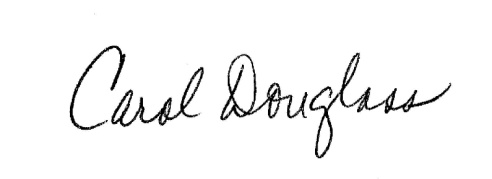 Carol Douglass